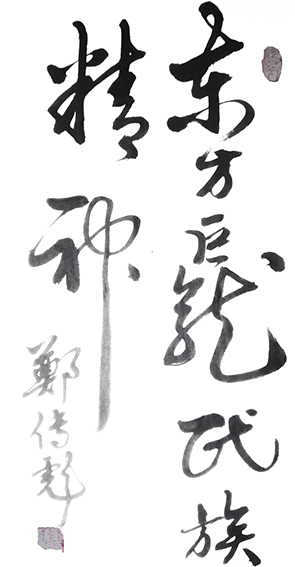 东方巨龍民族
精神
鄭传彪